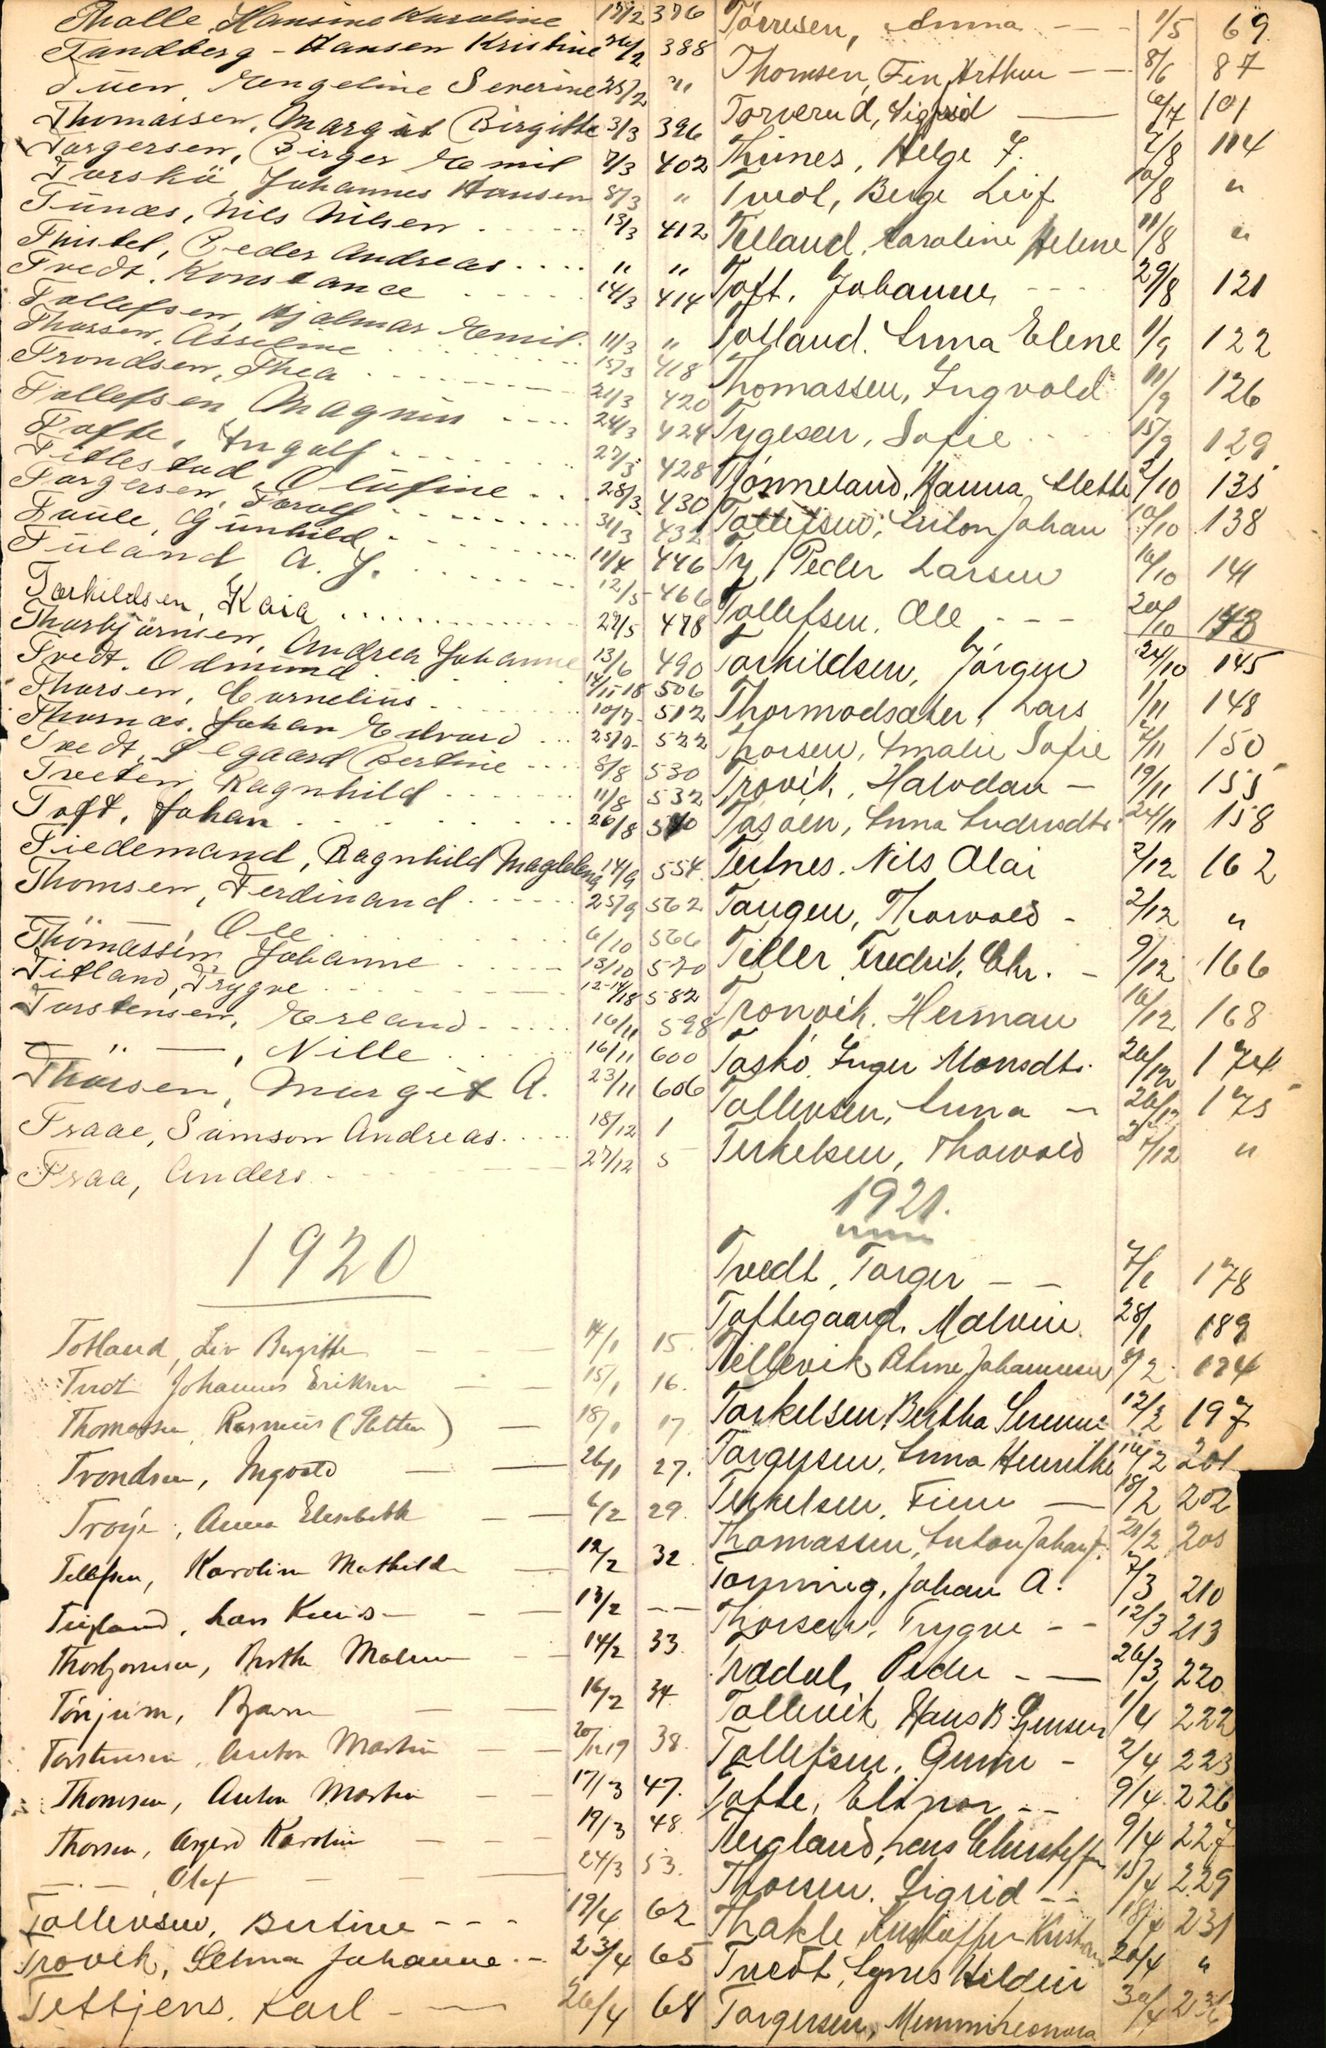 Thalle, Hansine Karoline 17/2 376
Tandberg - Hansen Kristine 24/2 388
Tuen, Engeline Severine 25/2 "
Thomassen, Margit Birgitte 3/3 396
Torgersen, Birger Emil 7/3 402
Torskø, Johannes Hansen 8/3 "
Tunæs, Nils Nilsen 13/3 412
Thistel, Peder Andreas " "
Tvedt, Konstance 14/3 414
Tollefsen, Hjalmar Emil 11/3 "
Thorsen, Asseline 15/3 418
Trondsen, Thea 21/3 420
Tollefsen Magnus 24/3 424
Tofte, Ingolf 27/3 428
Titlestad, Olufine 28/3 430
Torgersen, Torolf 31/3 432
Taule, Gunhild 11/4 446
Tuland A. J. 12/5 466
Torkildsen, Kaia 29/5 478
Thorbjørnsen, Andrea Johanne 13/6 490
Tvedt, Odmund 506
Thorsen, Cornelius 10/7 512
Thornæs, Johan Edvard 522
Tvedt, Bertine 8/8 530
Tveten, Ragnhild 11/8 532
Toft, Johan 26/8 540
Tiedemand, Ragnhild Magdalena 14/9 554
Thomsen, Ferdinand 25/9 562
Ole 6/10 566
Thomassen, Johanne 13/10 570
Titland, Trygve 582
Torstensen, Erland 16/11 598
— " —, Nille 16/11 600
Thorsen, Margit A. 23/11 606
Traae, Samson Andreas 18/12 1
Traa, Anders 27/12 5
1920
Totland, Liv Birgitte 14/1 15.
Tvedt Johannes Eriksen 15/1 16.
Thomassen Rasmus 18/1 17
Trondsen, Ingvald 26/1 27.
Troye, Anna Elisabeth 6/2 29.
Tellefsen, Karoline Mathilde 12/2 32
13/2 - -
Thorbjørnsen, Malene 14/2 33.
Tønjum, Bjarne 16/2 34
Torstensen, Anton Martin 38.
Thomsen, Anton Martin 17/3 47.
Thorsen, Karoline 19/3 48.
—"—, Olaf 24/3 53.
Tollevsen, Bertine 19/4 62
Trovik, Selma Johanne 23/4 65
Tettjens, Karl 26/4 68
Tørresen, Anna 1/5 69
Thomsen, Fin Arthur 8/6 87
Torverud, Sigfrid 101
Thunes, Helge F. 7/8 114
Tvedt, Berge Leif 10/8 "
Telland, Karoline Helene 11/8 "
Toft, Johanne 29/8 121
Tolland, Anna Elene 1/9 122
Thomassen, Ingvald 11/9 126
Tygesen, Sofie 15/9 129
Tjønneland, Hanna Mette 2/10 135
Tollefsen, Anton Johan 10/10 138
Ty, Peder Larsen 16/10 141
Tollefsen, Ole 20/10 143
Torkildsen, Jørgen 24/10 145
Thormodsæter, Lars 1/11 148
Thorsen, Amalie Sofie 7/11 150
Trovik, Halvdan 19/11 155
Tasøen, Anna Andersdtr. 24/11 158
Tertnes, Nils Olai 2/12 162
Tangen, Thorvald 2/12 "
Teller Fredrik Chr. 9/12 166
Tronvik, Herman 16/12 168
Taskø, Inger Monsdtr. 26/12 174
Tollevsen, Anna 26/12 175
Terkelsen, Thorvald /12 "
1921.
Tvedt, Torger 7/1 178
Toftegaard, Malvin 28/1 189
8/2 194
Torkelsen, Bertha Serene 12/2 197
Torgersen, Anna Henrikke 16/2 201
Terkelsen, Finn 18/2 202
Thomassen, Anton Johan J. 20/2 205
Tonning, Johan A. 7/3 210
Thorsen, Trygve 12/3 213
Trædal, Peder 26/3 220
Tollevik, Hans B. Jensen 1/4 222
Tollefsen, Gunn 2/4 223
Tofte, Elinor 9/4 226
Teigland, Lars Christoffer 9/4 227
Thorsen, Sigrid 15/4 229
Thakle, Kristoffer Kristian 18/4 231
Tvedt, Agnes Hildur 20/4 "
Torgersen, Mimmi Leonora 30/4 236